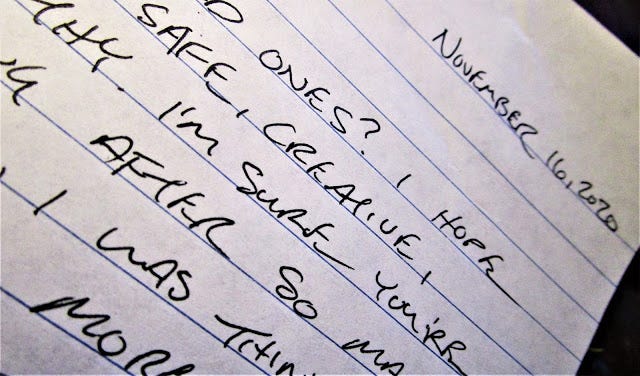 NOVEMBER 16, 2020
D ONES? I HOPE
SAFE, CREATIVE,
THY. I'M SURE YOU'RE
AFTER SO MA
, I WAS THIN
MORE